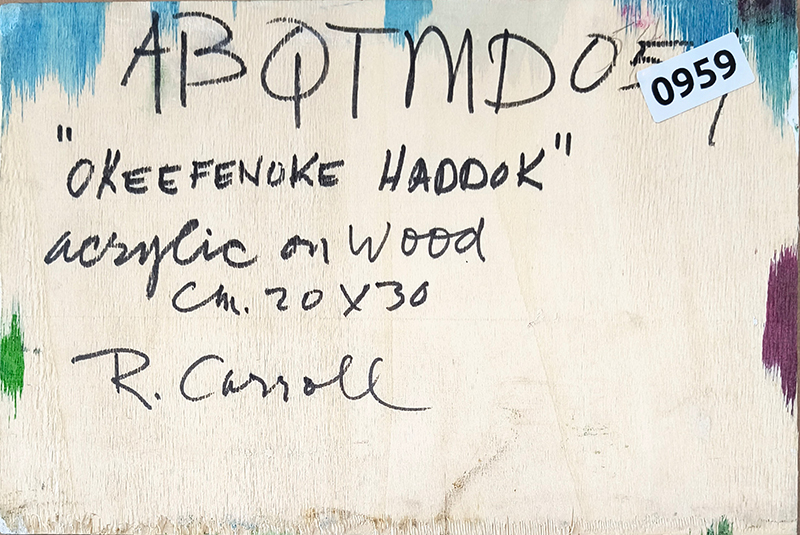 ABQTMD05
0959
"OKEEFENOKE HADDOK"
acrylic on Wood
Cm. 20 X 30
R. Carroll